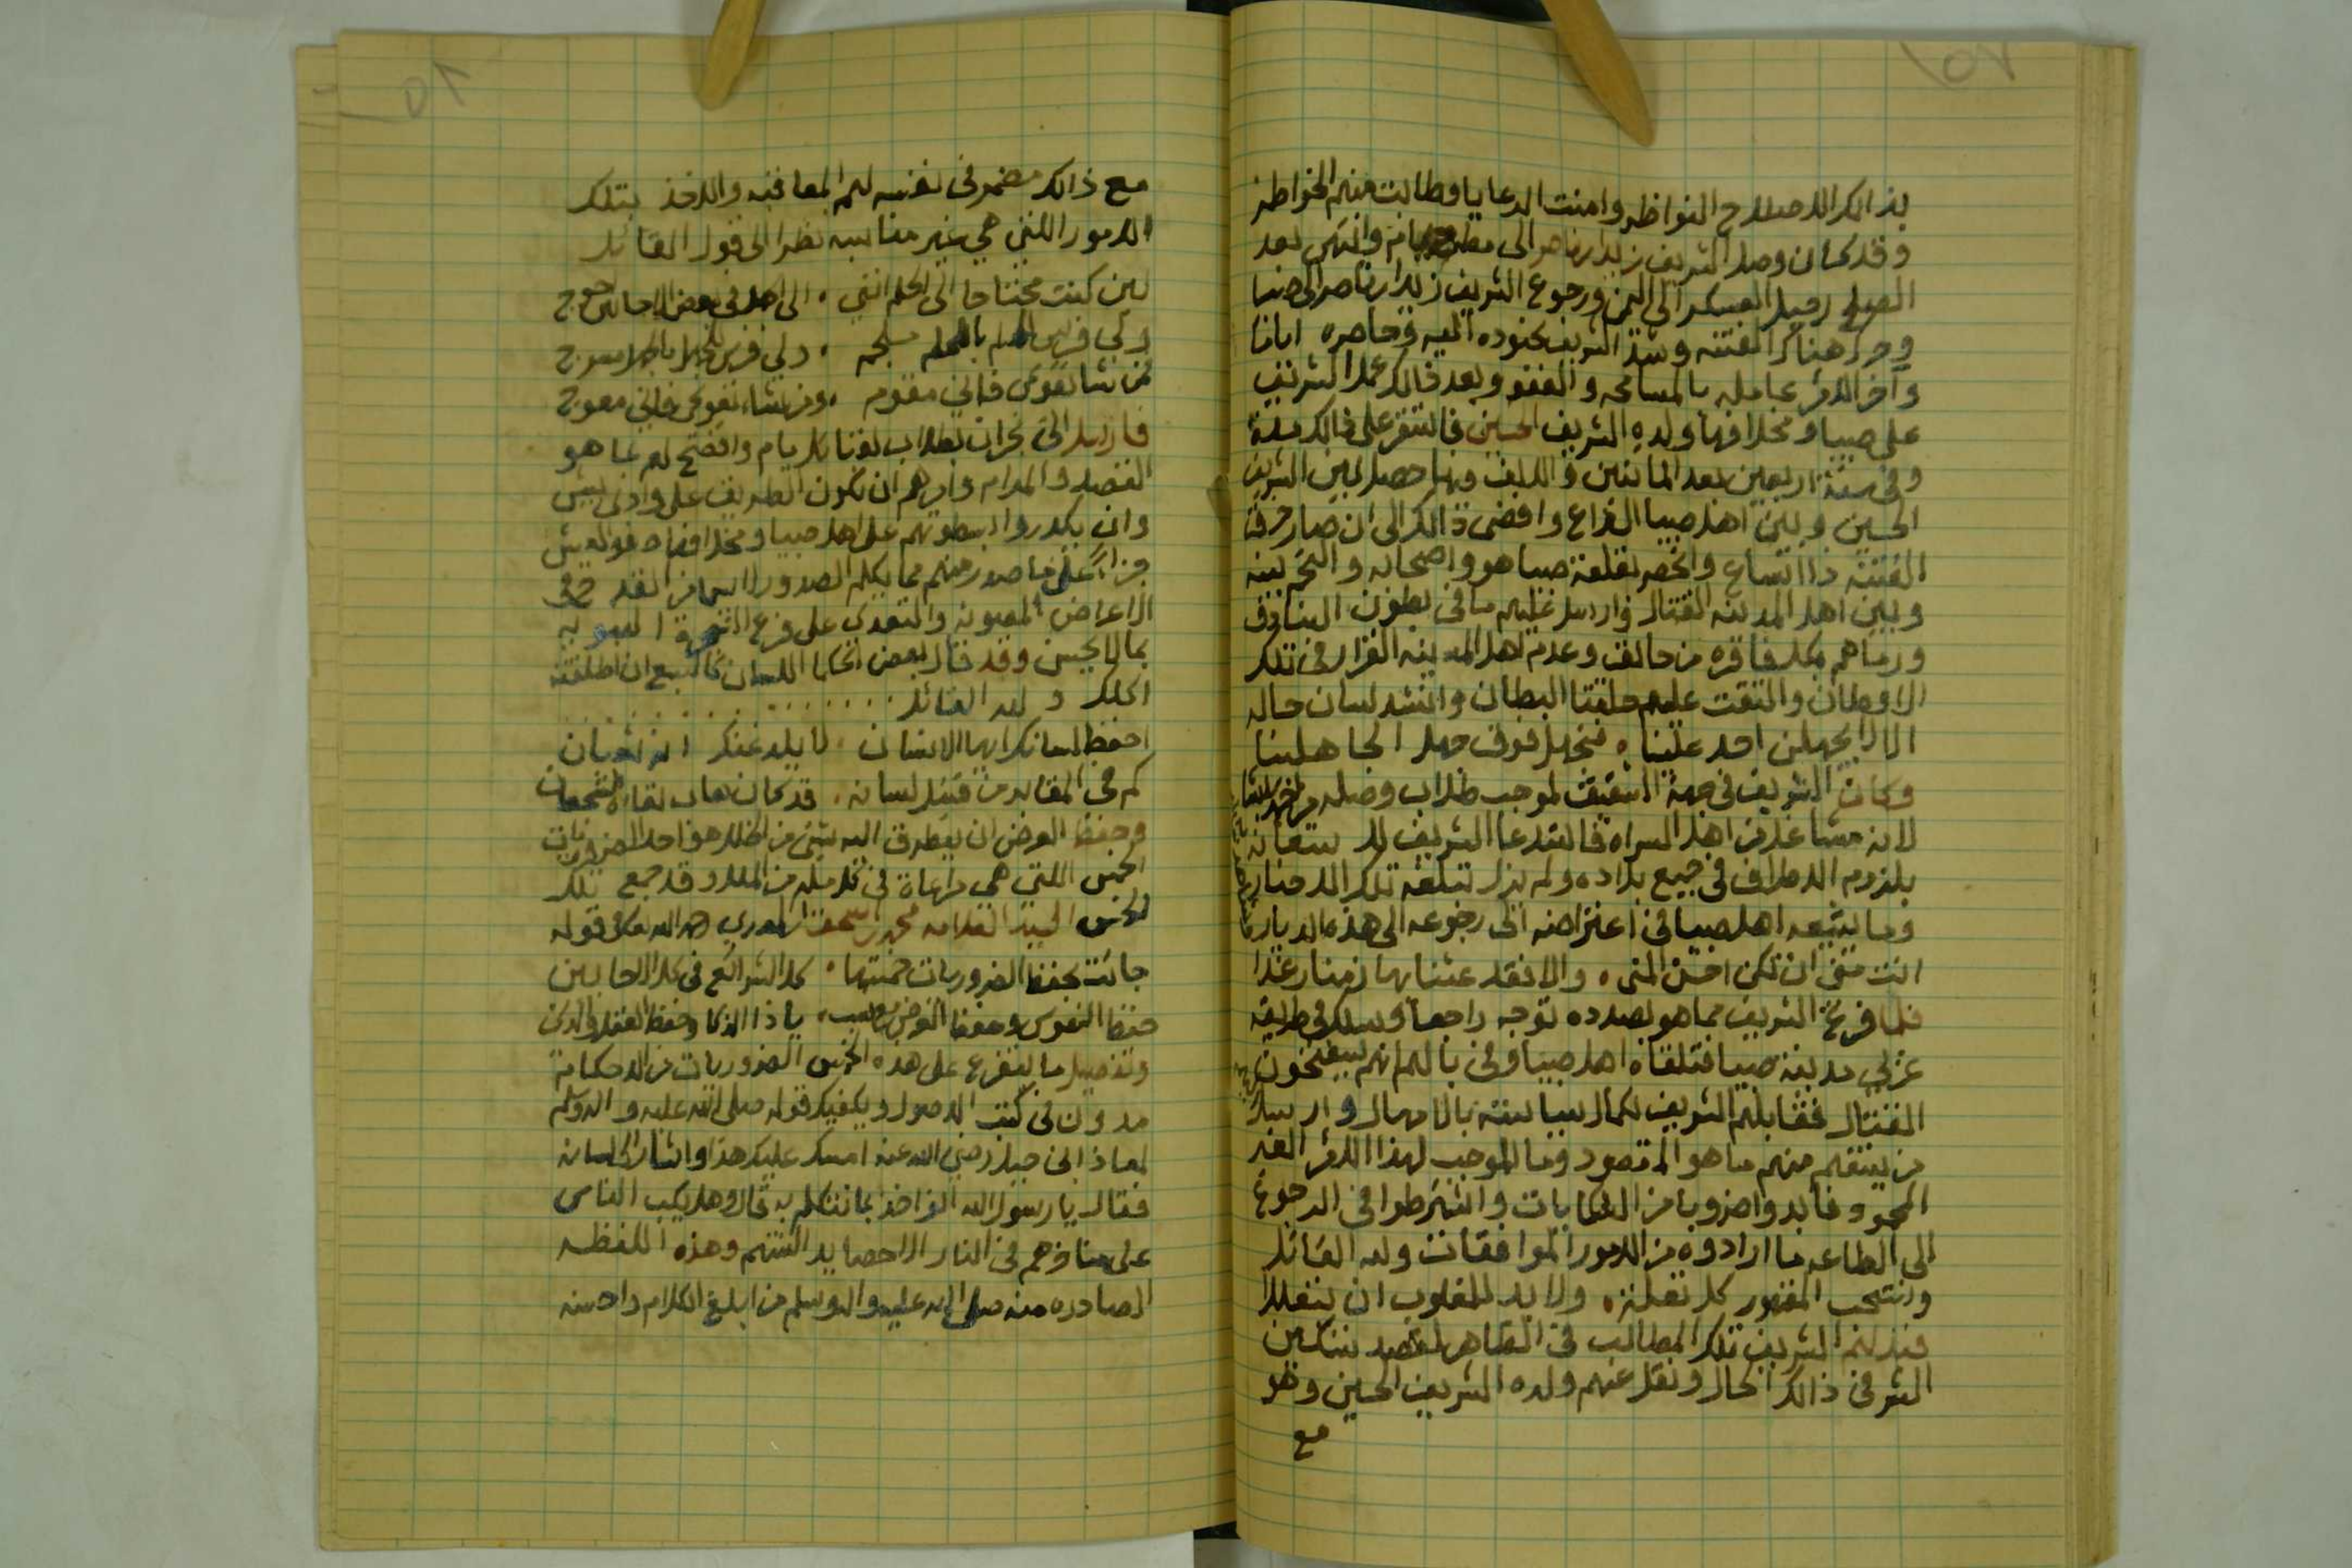 بذالك الاصلاح النواظر وامنت الرعايا وطابت منهم الخواطر
وقد كان وصل الشريف زيد ابن ناصر الى مطرح يام وانتهى بعد
الصلح رحيل العسكر الى اليمن ورجوع الشريف زيد ابن ناصر الى صبيا
وحرك هناك الفتنه وشد الشريف بجنوده اليه وحاصره اياما
وآخر الامر عامله بالمسامحه والعفو وبعد ذالك عمل الشريف
على صبيا ومخلافها ولده الشريف الحسين فاستقر على ذالك مدة
وفي سنة اربعين بعد المائتين والالف وبها حصل بين الشريف
الحسين وبين اهل صبيا النزاع وافضى ذالك الى ان صار خرق
الفتنه ذا اتساع وانحصر بقلعة صبيا هو واصحابه والتحم بينه
وبين اهل المدينه القتال وارسل عليهم ما في بطون البنادق
ورماهم بكل فاقره من حالق وعدم اهل المدينه القرار في تلك
الاوطان والتقت عليهم حلقتا البطان وانشد لسان حاله
الا لا يجهلن احد علينا ، فنجهل فوق جهل الجاهلينا
وكان الشريف في جهة الشقيق لموجب طلاب وصله من
لانه مشاغل من اهل السراه فاستدعا الشريف للاستعانه
بلزوم الاطراف في جميع بلاده ولم يزل تبلغه تلك الاخبار
وما يتبعه اهل صبيا في اعتراضه الى رجوعه الى هذه الديار
انت منى ان تكن احسن المنى ، والا فقد عشنا بها زمنا رغدا
فلما فرغ الشريف مما هو بصدده توجه راجعا وسلك في طريقه
غربي مدينة صبيا فتلقاه اهل صبيا وفي بالهم انهم سيفتحون
القتال فقابلهم الشريف بكمال سياسته بالامهال وارسل
من يستفهم منهم ما هو المقصود وما الموجب لهذا الامر الغير
المحمود فابدوا ضروبا من الشكايات واشترطوا في الرجوع
الى الطاعه ما ارادوه من الامور الموافقات ولله القائل
ويستصحب المقهور كل تعلة ، ولا بد للمغلوب ان يتعللا
فبذل لهم الشريف تلك المطالب في الظاهر لقصد تسكين
الشر في ذالك الحال ونقل عنهم ولده الشريف الحسين وهو
مع
مع ذالك مضمر في نفسه لهم المعاقبه والاخذ بتلك
الامور اللتي هي غير مناسبه نظرا الى قول القائل
لئن كنت محتاجا الى الحلم انني ، الى الجهل في بعض الاحايين احوج
ولي فرس للحلم بالحلم ملجم ، ولي فرس للجهل بالجهل مسرج
فمن شا تقويمي فاني مقوم ، ومن شاء تعويجي فاني معوج
فارسل الى نجران بطلاب لقبائل يام وافصح لهم بما هو
القصد والمرام وامرهم ان تكون الطريق على وادي بيش
وان يكدروا بسطوتهم على اهل صبيا ومخلافها صفو العيش
جزاء على ما صدر منهم مما يكلم الصدور من القدح في
الاعراض المصونه والتعدي على فرع الشجرة النبويه
بما لا يحسن وقد قال بعض الحكما اللسان كالسبع ان اطلقته
اكلك ولله القائل ........
احفظ لسانك ايها الانسان ، لا يلدغنك انه ثعبان
كم في المقابر من قتيل لسانه ، قد كان هاب لقاه الشجعان
وحفظ العرض ان يطرق اليه شي من الخلل هو احد الضروريات
الخمس اللتي هي مراعاة في كل مله من الملل وقد جمع تلك
الخمس السيد العلامه محمد بن اسمعيل رحمه الله في قوله
جائت بحفظ الضروريات خمستها ، كل الشرائع في كل الاحايين
حفظ النفوس وحفظ العرض مع نسب ، يا ذا الذكا وحفظ العقل والدين
وتفصيل ما يتفرع على هذه الخمس الضروريات من الاحكام
مدون في كتب الاصول ويكفيك قوله صلى الله عليه واله وسلم
لمعاذ ابن جبل رضي الله عنه امسك عليك هذا واشار الى لسانه
فقال يا رسول الله انؤاخذ بما نتكلم به قال وهل يكب الناس
على مناخرهم في النار الا حصايد السنتهم وهذه اللفظه
الصادره منه صلى الله عليه واله وسلم من ابلغ الكلام واحسنه